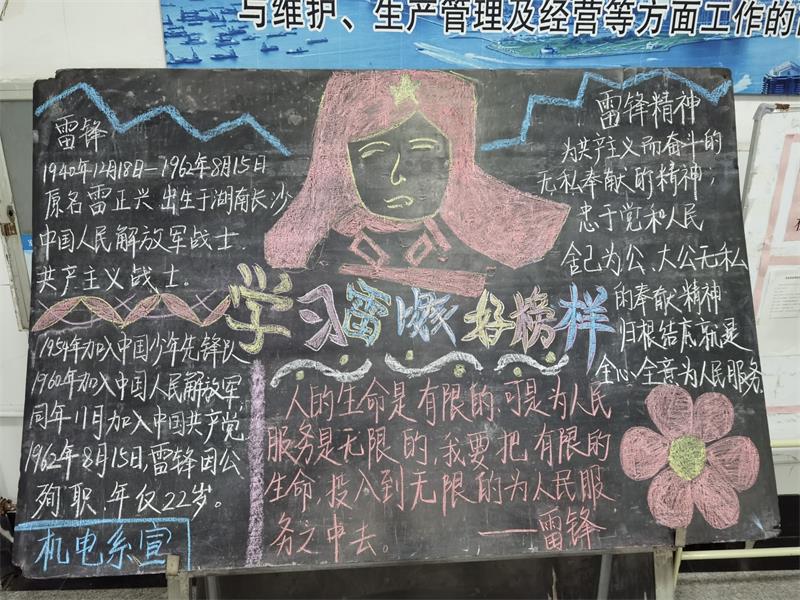 与维护、生产管理及经营等方面工作的
雷锋
1940年12月18日—1962年8月15日
原名雷正兴出生于湖南长沙
中国人民解放军战士.
共产主义战士。
1954年加入中国少年先锋队
1960年加入中国人民解放军,
同年11月加入中国共产党
1962年8月15日,雷锋因公
殉职,年仅22岁。
机电系宣
学习雷锋好榜样
人的生命是有限的,可是为人民
服务是无限的,我要把有限的
生命,投入到无限的为人民服
务之中去。 ——雷锋
雷锋精神
为共产主义而奋斗的
无私奉献的精神,
忠于党和人民
舍己为公、大公无私
的奉献精神
归根结底就是
全心全意为人民服务.